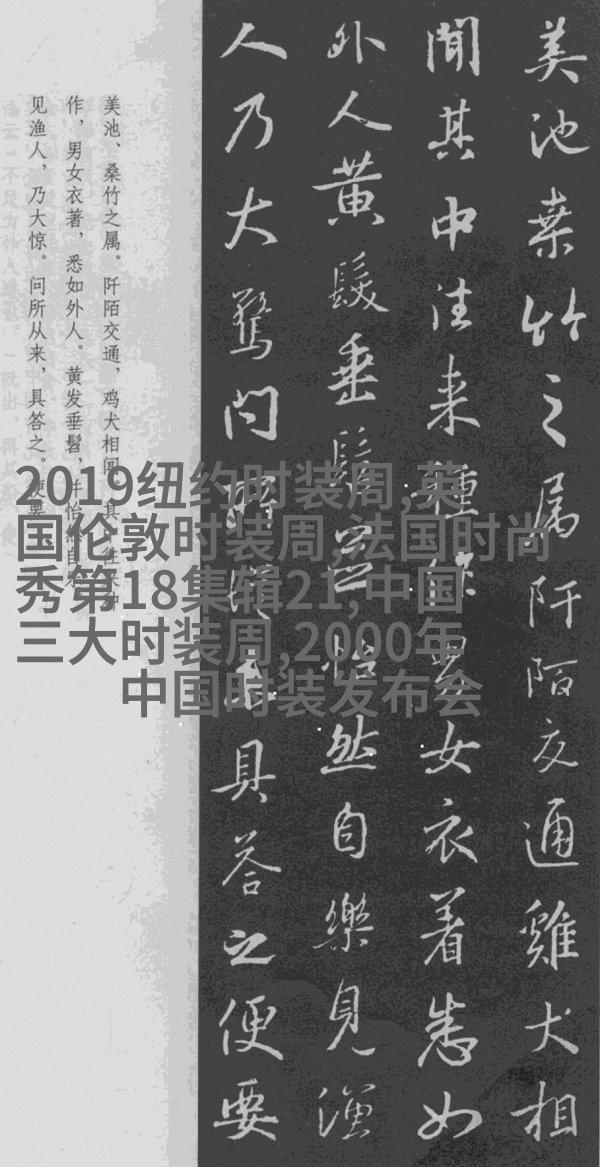 美池桑竹之属阡陌交通雞犬相
聞其中往来種作男女衣着悉如
外人黄髮垂髫並怡然自樂見渔
人乃大驚问所従来具答之便要
美池、桑竹之属。阡陌交通，鸡犬相闻。其中往来种
作，男女衣著，悉如外人。黄发垂髫，并怡然自乐。
见渔人，乃大惊。问所从来，具答之。便要
2019纽约时装周,英
国伦敦时装周,法国时尚
秀第18集辑21,中国
三大时装周,2000年
中国时装发布会